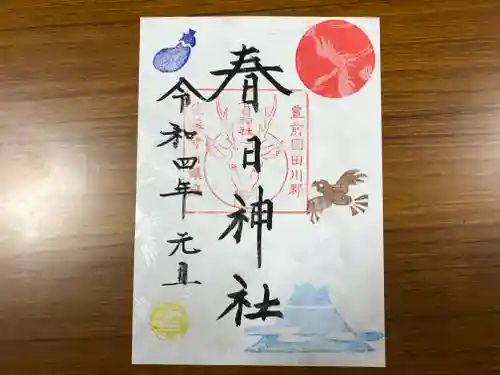 豊前国田川郡
春日神社
令和四年 元旦